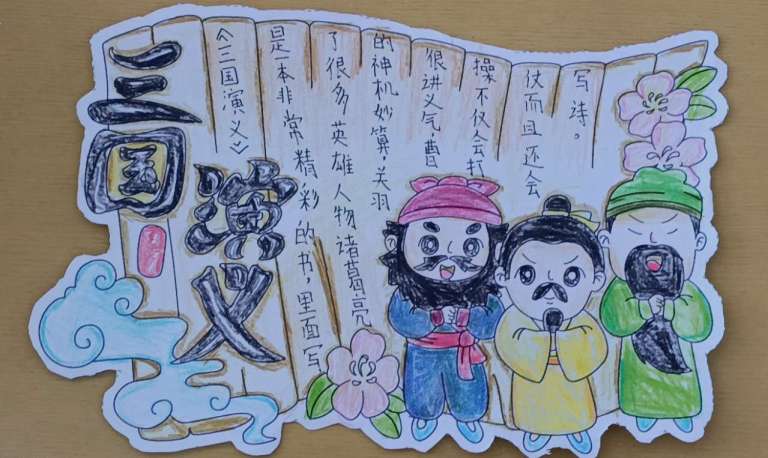 三国
演义
《三国演义》
是一本非常精彩的书，里面写
了很多英雄人物诸葛亮
的神机妙算，关羽
很讲义气，曹
操不仅会打
仗而且还会
写诗。